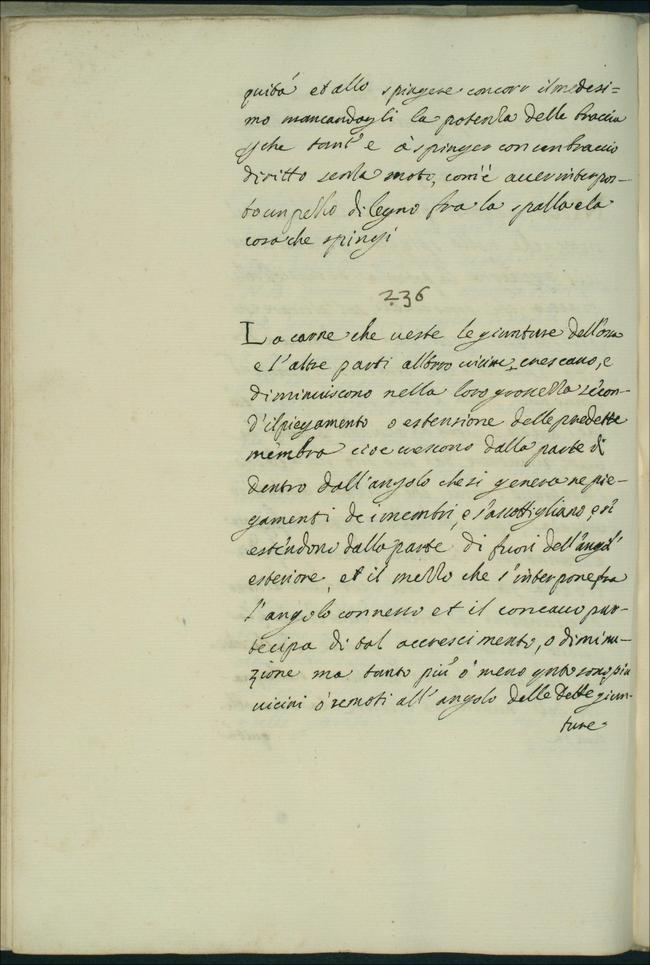 quità et allo spingere concorr il medesi=
mo mancandogli la potenza delle braccia
che tant' e à spinger con un braccio
diritto senza moto, com'è auer interpos–
to un pezzo di legno fra la spalla e la
cosa che spingi
236
La carne che ueste le giunture dell'ossa
e l'altre parti all'osso uicine, crescano, e
diminuiscono nella loro grossezza secon–
d' il piegamento o estensione delle predette
membra cioe crescono dalla parte di
dentro dall'angolo che si genera ne pie–
gamenti de i membri, e s'assottigliano, e si
estendono dalla parte di fuori dell'angol'
esteriore, et il mezzo che s'interpone fra
l'angolo connesso et il concauo par–
tecipa di tal accrescimento, o diminu–
zione ma tanto più o' meno qnto sono più
uicini o' remoti all'angolo delle dette giun–
ture